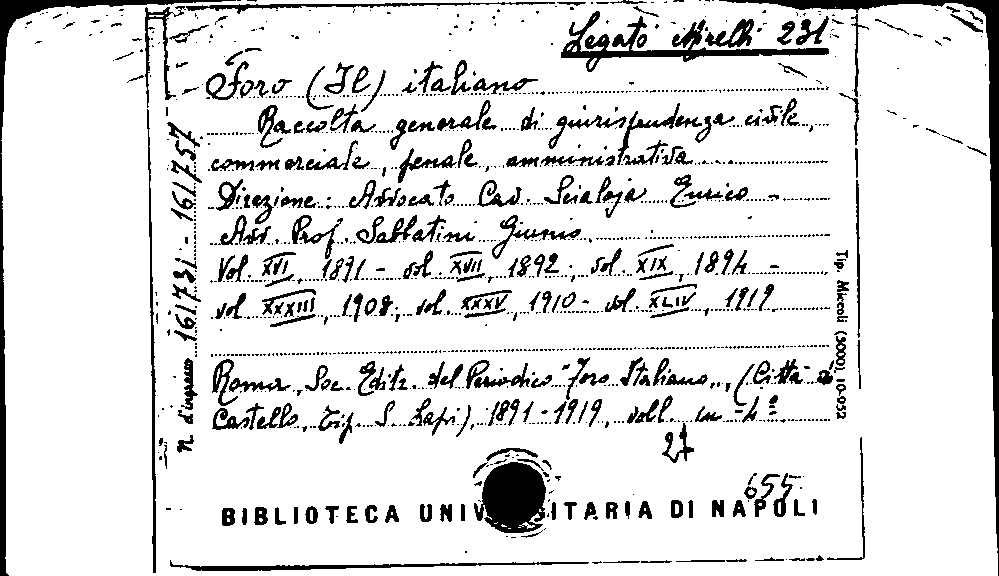 Legato Mirelli 231
Foro (Il) italiano
Raccolta generale di giurisprudenza civile,
commerciale, penale, amministrativa ...
Direzione: Avvocato Cav. Scialoja Enrico -
Avv. Prof. Sabbatini Giunio.
Vol. XVI, 1891 - vol. XVII, 1892; vol. XIX, 1894 -
vol. XXXIII, 1908; vol. XXXV, 1910 - vol. XLIV, 1919
Roma, Soc. Editr. del Periodico "Foro Italiano", (Città di
Castello, Tip. S. Lapi), 1891-1919, voll. in-4º
27
655
BIBLIOTECA UNIV SITARIA DI NAPOLI
N. d'ingresso 161731 - 161757
Tip. Miccoli (3000), 10-952